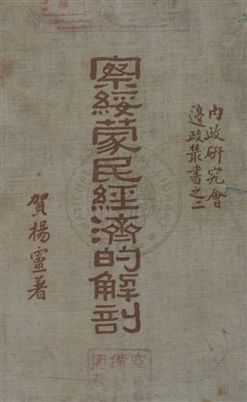 內政研究會
邊政叢書之二
察綏蒙民經濟的解剖
賀楊靈著